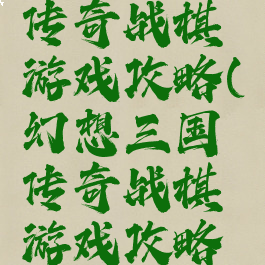 传奇战棋
游戏攻略(
幻想三国
传奇战棋
游戏攻略